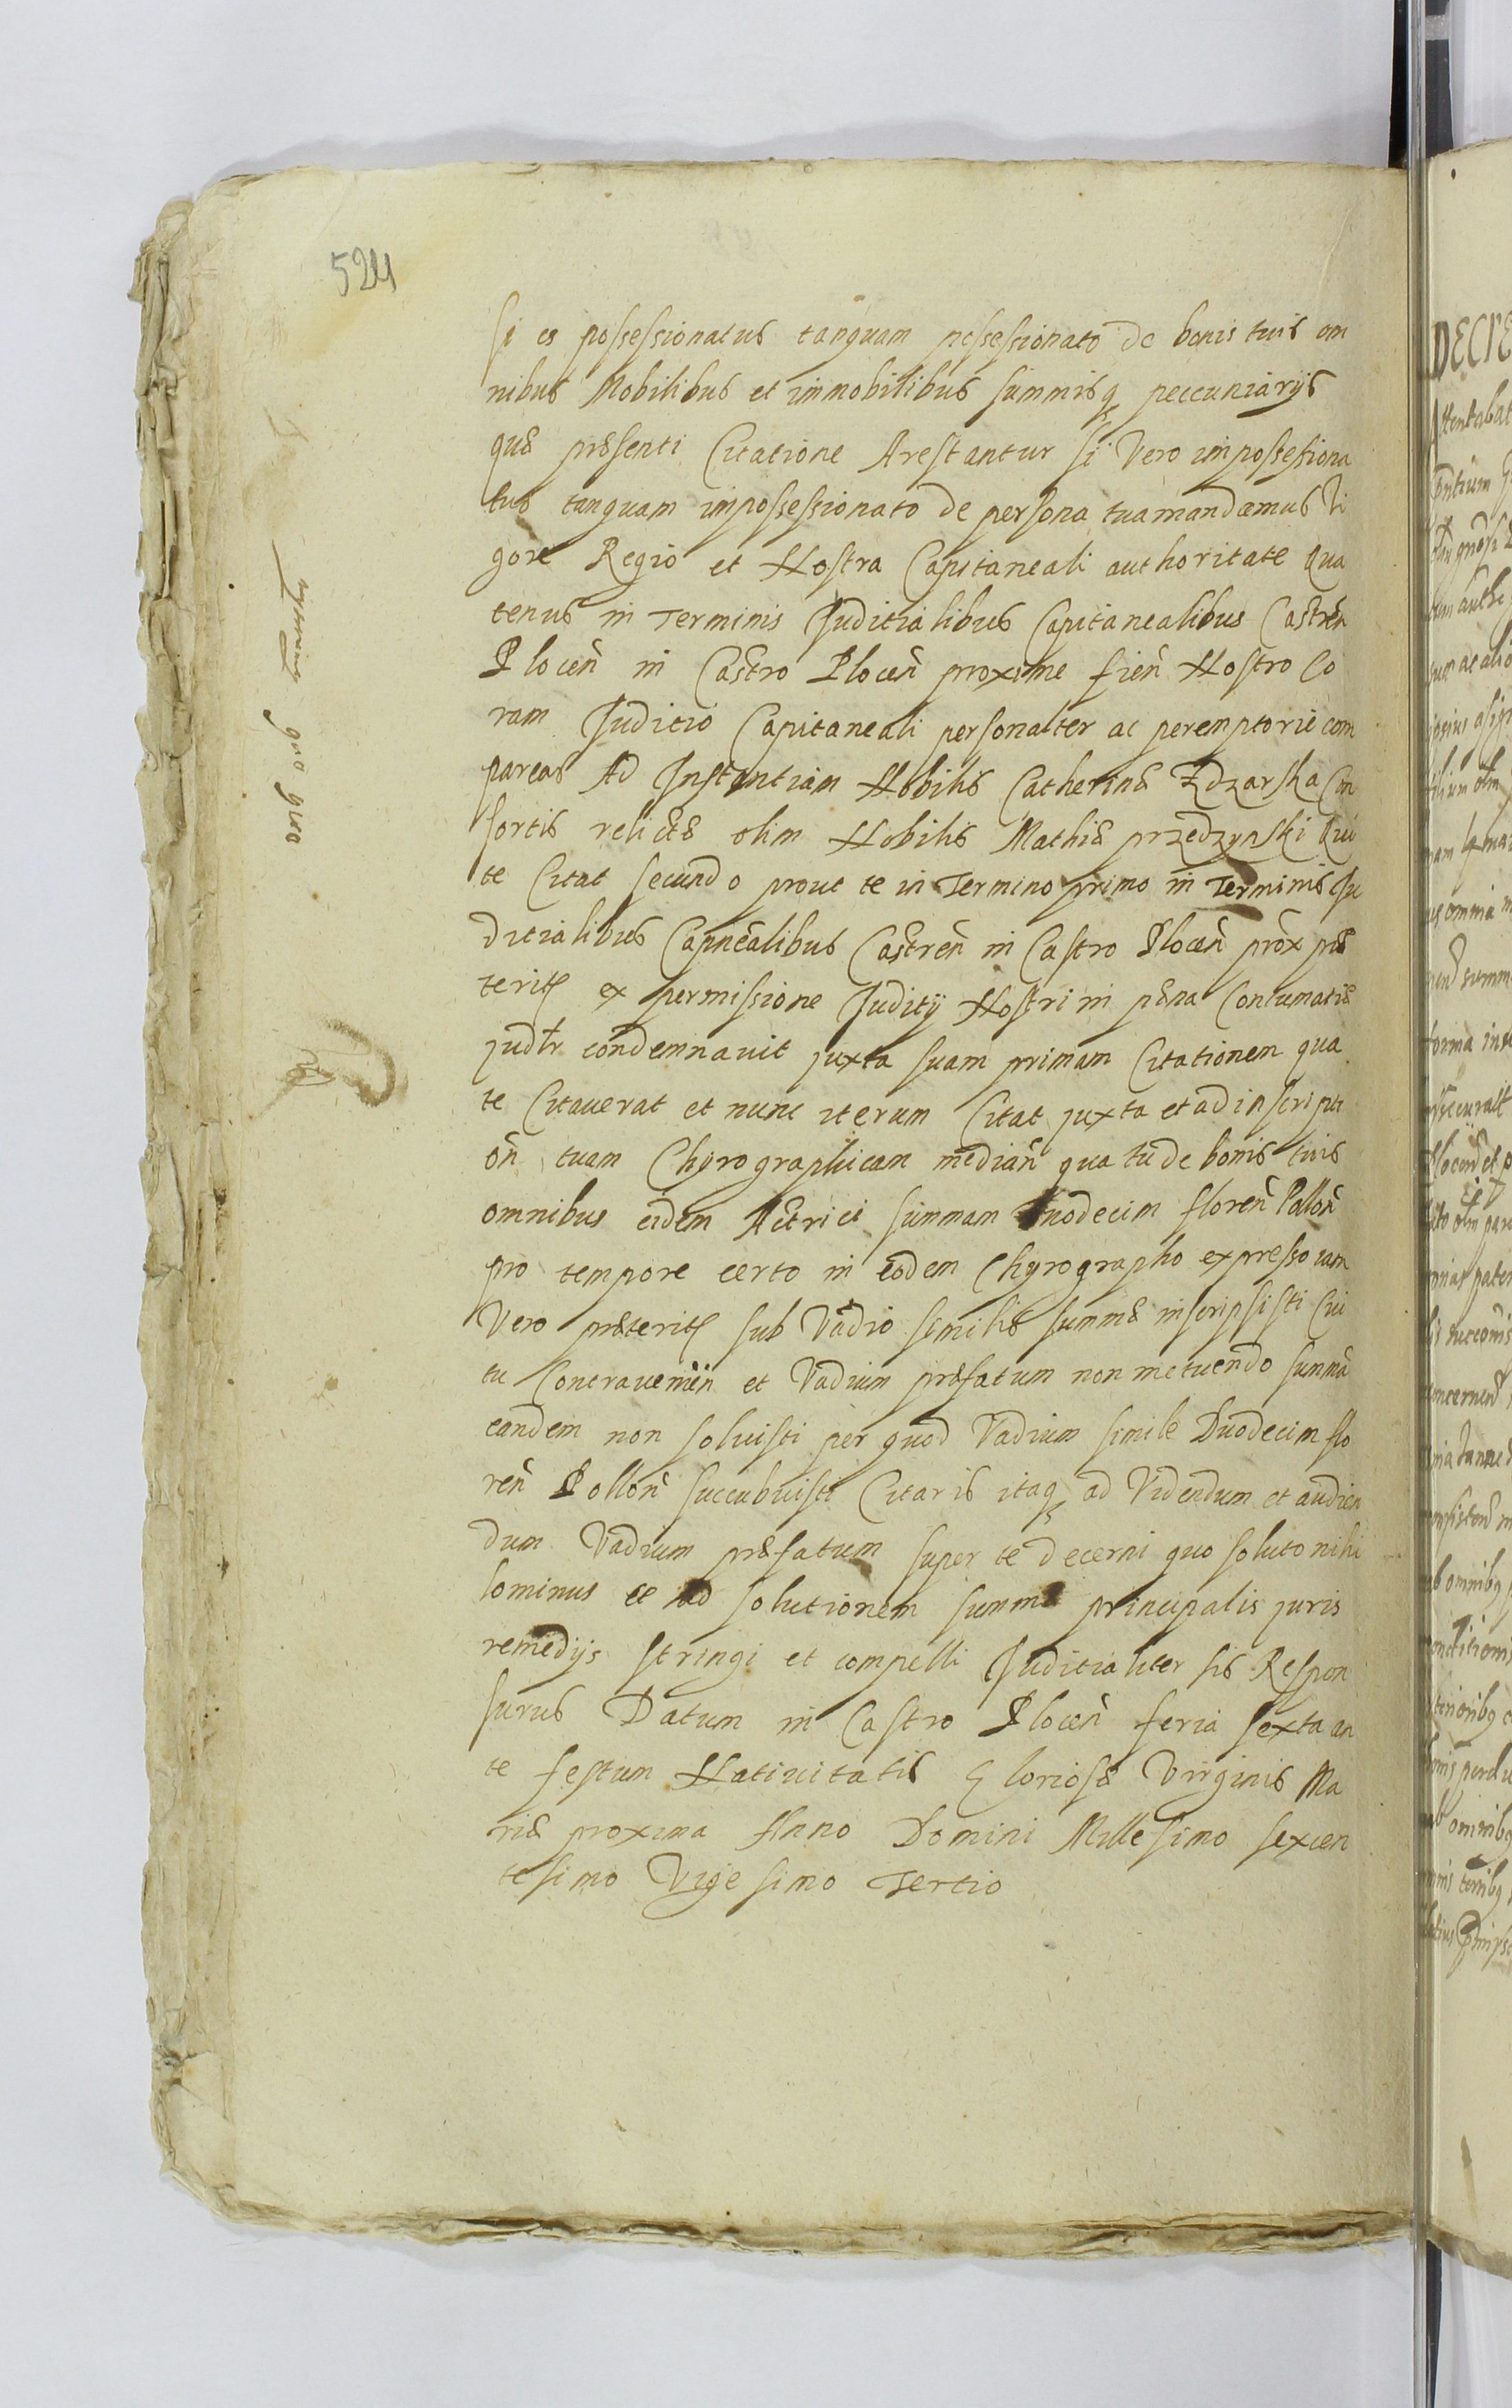 524
si es possessionatus tanquam possessionato de bonis tuis om
nibus Mobilibus et immobilibus summisq peccuniarijs
quæ præsenti Citatione Arestantur si Vero impossessiona
tus tanquam impossessionato de persona tua mandamus Vi
gore Regio et Nostra Capitaneali authoritate Qua
tenus in Terminis Juditialibus Capitanealibus Castreñ
Ploceñ in Castro Ploceñ proxime fieñ Nostro Co
ram Juditio Capitaneali personaliter ac peremptorie com
pareas Ad Instantiam Nobilis Catherinæ Zdzarska Con
sortis relictæ olim Nobilis Mathiæ przedzynski Qui
te Citat secundo prout te in Termino primo in Terminis Ju
ditialibus Capnealibus Castreñ in Castro Ploceñ prox præ
terit ex permissione Juditij Nostri in pæna Contumatiæ
judlr condemnauit juxta suam primam Citationem qua
te Citauerat et nunc iterum Citat juxta et ad inscripti
oñ tuam Chyrographicam mediañ qua tu de bonis tuis
omnibus eidem Actrici summam Duodecim floreñ Polloñ
pro tempore certo in eodem Chyrographo expresso iam
Vero præterit sub Vadio similis summæ inscripsisti Cui
tu Contraueniеñ et Vadium præfatum non metuendo summã
eandem non soluisti per quod Vadium simile Duodecim flo
reñ Polloñ succubuisti Citaris itaq ad Videndum et audien
dum Vadium præfatum super te decerni quo soluto nihi
lominus et ad solutionem summæ principalis juris
remedijs stringi et compelli Juditialiter sis Respon
surus Datum in Castro Ploceñ feria sexta an
te festum Natiuitatis Gloriosæ Virginis Ma
riæ proxima Anno Domini Millesimo sexcen
tesimo Vigesimo Tertio